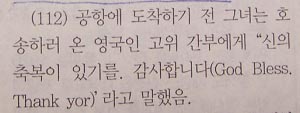 (112) 공항에 도착하기 전 그녀는 호
송하러 온 영국인 고위 간부에게 “신의
축복이 있기를. 감사합니다(God Bless.
Thank yor)’라고 말했음.